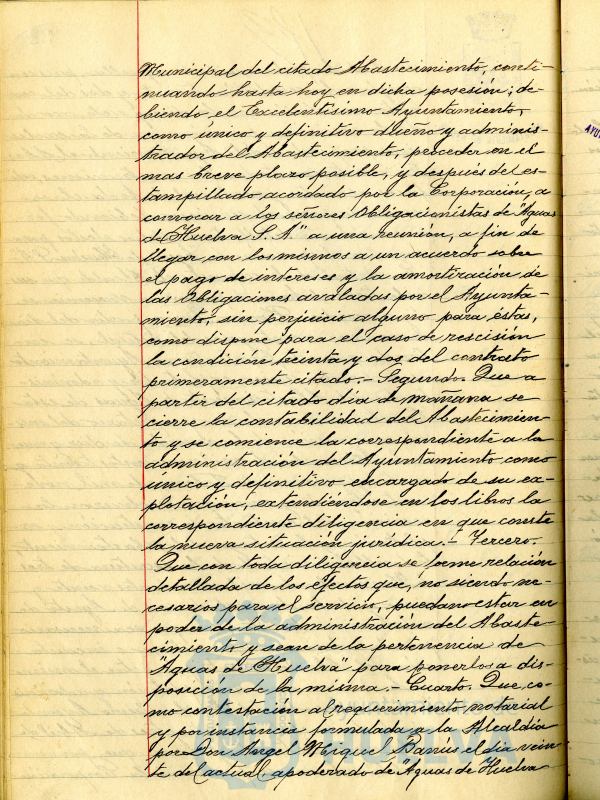 Municipal del citado Abastecimiento, conti-
nuando hasta hoy en dicha posesión; de-
biendo, el Excelentísimo Ayuntamiento,
como único y definitivo dueño y adminis-
trador del Abastecimiento, proceder en el
mas breve plazo posible, y después del es-
tampillado acordado por la Corporación, a
convocar a los señores Obligacionistas de "Aguas
de Huelva S. A." a una reunión, a fin de
llegar con los mismos a un acuerdo sobre
el pago de intereses y la amortización de
las Obligaciones avaladas por el Ayunta-
miento, sin perjuicio alguno para éstas,
como dispone para el caso de rescisión
la condición treinta y dos del contrato
primeramente citado.- Segundo. Que a
partir del citado día de mañana se
cierre la contabilidad del Abastecimien-
to y se comience la correspondiente a la
administración del Ayuntamiento como
único y definitivo encargado de su ex-
plotación, extendiéndose en los libros la
correspondiente diligencia en que conste
la nueva situación jurídica.- Tercero.
Que con toda diligencia se forme relación
detallada de los efectos que, no siendo ne-
cesarios para el servicio, puedan estar en
poder de la administración del Abaste-
cimiento y sean de la pertenencia de
"Aguas de Huelva" para ponerlos a dis-
posición de la misma.- Cuarto. Que, co-
mo contestación al requerimiento notarial
y por instancia formulada a la Alcaldía
por Don Angel Miguel Banús el día vein-
te del actual, apoderado de "Aguas de Huelva